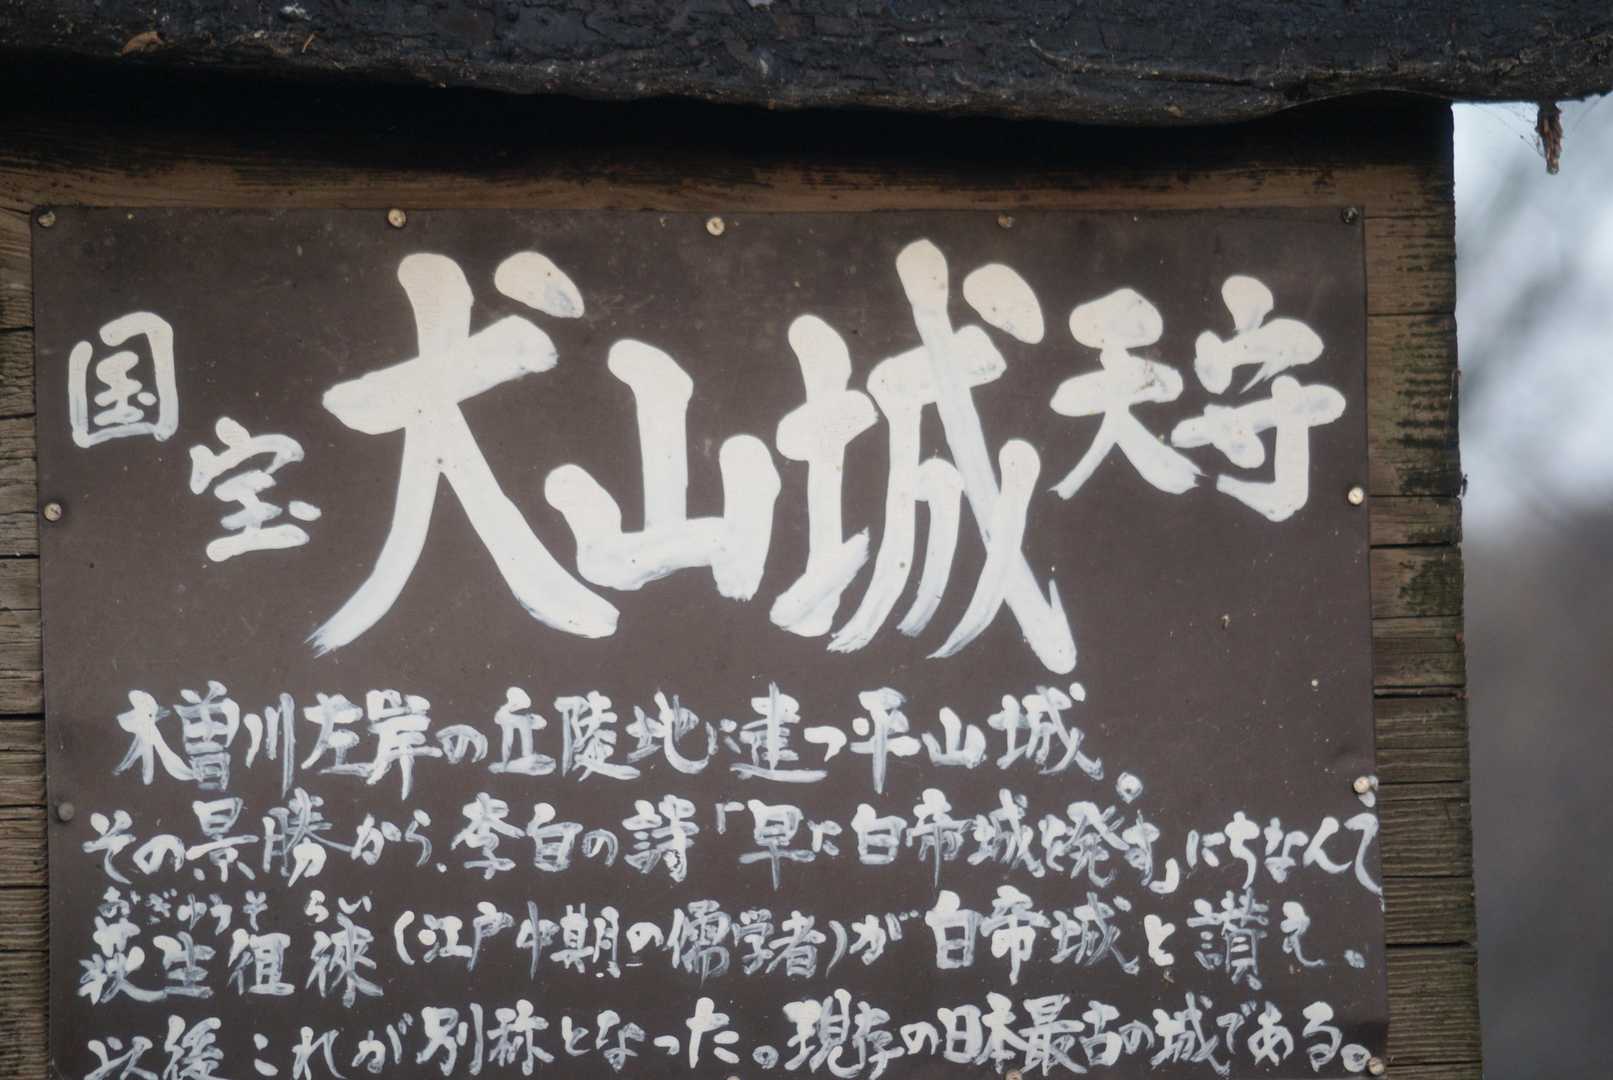 国宝 犬山城 天守
木曽川左岸の丘陵地に建つ平山城。
その景勝から、李白の詩「早に白帝城を発す」にちなんで
おぎゅうそ らい
荻生徂徠(江戸中期の儒学者)が白帝城と讃え、
以後これが別称となった。現存の日本最古の城である。